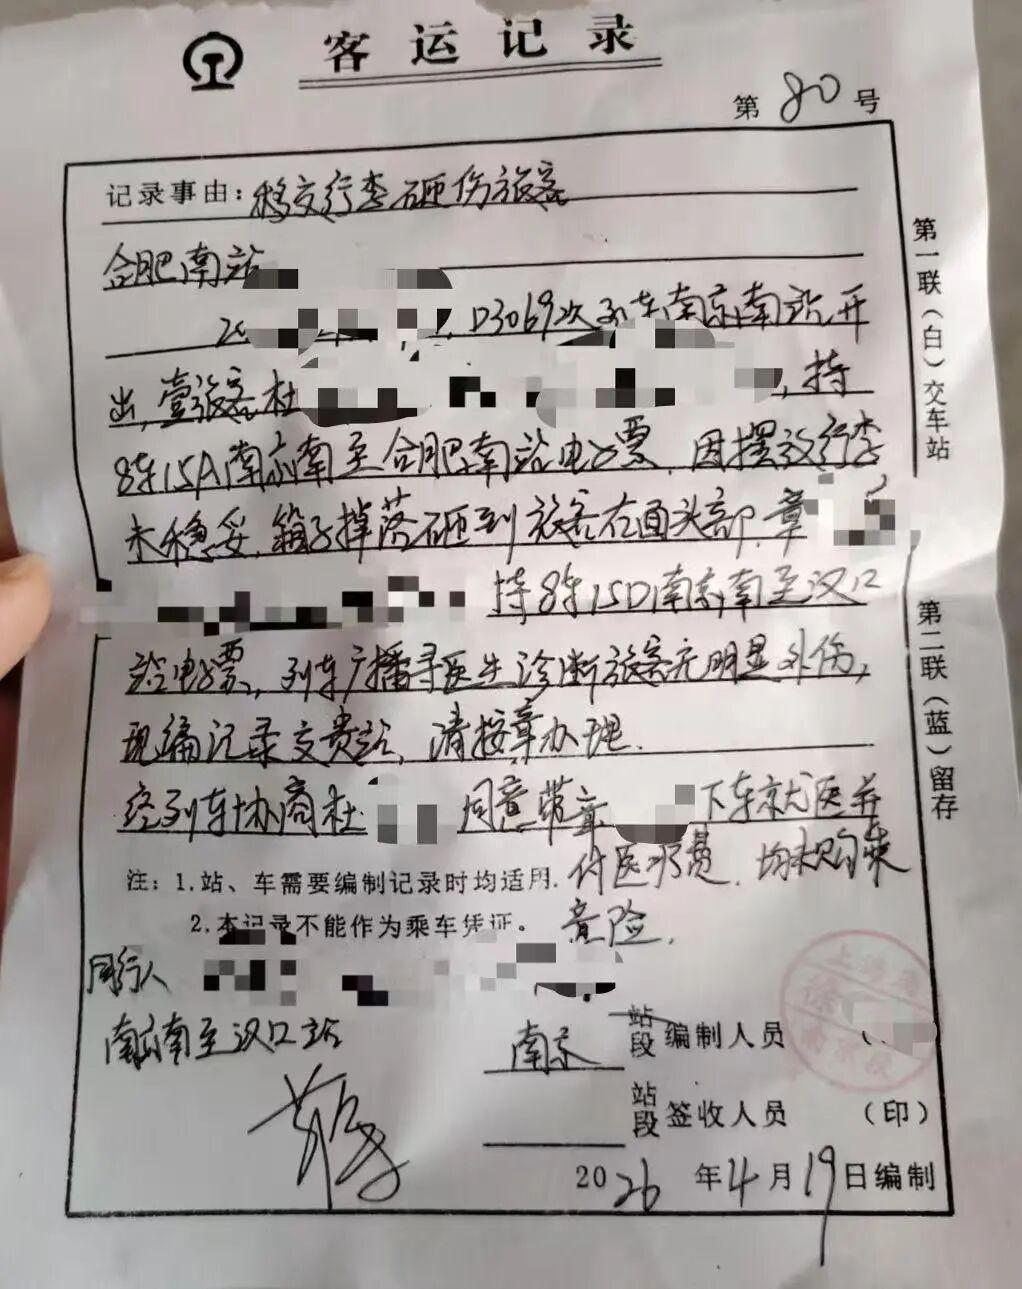 客运记录
第80号
记录事由:移交行李砸伤旅客
合肥南站
D3069次列车南京南站开
出,壹旅客杜 ,持
8车15A南京南至合肥南站电子票,因摆放行李
未稳妥,箱子掉落砸到旅客右面头部,章
持8车15D南京南至汉口
站电子票,列车广播寻医生诊断旅客无明显外伤,
现编记录交贵站,请按章办理.
经列车协商杜 同意带章 下车就医并
付医疗费.均未购乘
意险.
注:1.站、车需要编制记录时均适用.
2.本记录不能作为乘车凭证。
同行人
南京南至汉口站
南京 站段 编制人员
站段 签收人员 (印)
2026年4月19日编制
第一联(白)交车站
第二联(蓝)留存
上海
南京段